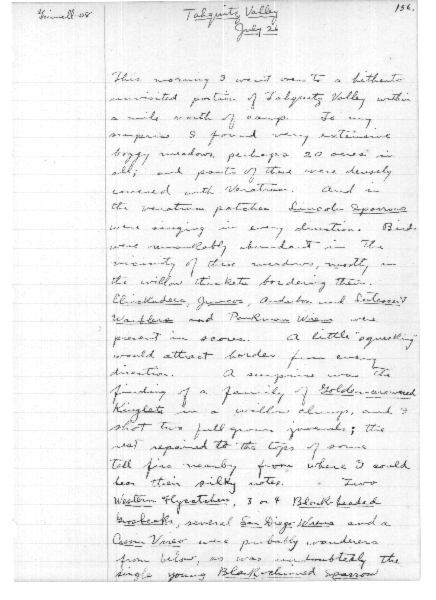 Grinnell-08
Tahquitz Valley
156.
July 26
This morning I went over to a hitherto
unvisited portion of Tahquitz Valley within
a mile north of camp. To my
surprise I found very extensive
boggy meadows, perhaps 20 acres in
all; and parts of these were densely
covered with Veratrum. And in
the veratrum patches Lincoln Sparrows
were singing in every direction. Birds
were remarkably abundant in the
vicinity of these meadows, mostly in
the willow thickets bordering them.
Chickadees, Juncos, Audubon and Lutescent
Warblers and Parkman Wrens were
present in scores. A little "squeaking"
would attract hordes from every
direction. A surprise was the
finding of a family of Golden-crowned
Kinglets in a willow clump, and I
shot two full grown juvenals; the
rest repaired to the tops of some
tall firs nearby from where I could
hear their silky notes. - Two
Western Flycatchers, 3 or 4 Black-headed
Grosbeaks, several San Diego Wrens and a
Cassin Vireo were probably wanderers
from below, as was undoubtedly the
single young Black-chinned Sparrow